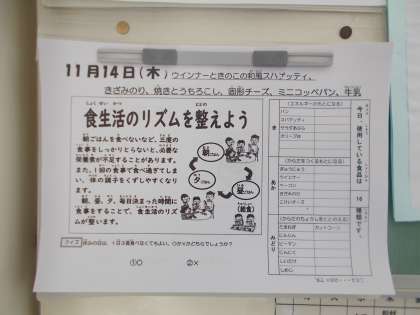 11月14日(木) ウインナーときのこの和風スパゲッティ、
きざみのり、焼きとうもろこし、固形チーズ、ミニコッペパン、牛乳
食生活のリズムを整えよう
朝ごはんを食べないなど、三度の
食事をしっかりとらないと、必要な
栄養素が不足することがあります。
また、1回の食事で食べ過ぎてしま
い、体の調子をくずしやすくなり
ます。
朝、昼、夕、毎日決まった時間に
食事をすることで、食生活のリズ
ムが整います。
朝ごはん
夕ごはん
昼ごはん
(給食)
クイズ
①○ ②×
今日、使用している食品は 16 種類です。
き
(エネルギーのもとになる)
パン
スパゲッティ
あか
(からだをつくるもとになる)
ぎゅうにゅう
ウインナー
ベーコン
きざみのり
みどり
たまねぎ
にんじん
ピーマン
にんにく
しいたけ
しめじ